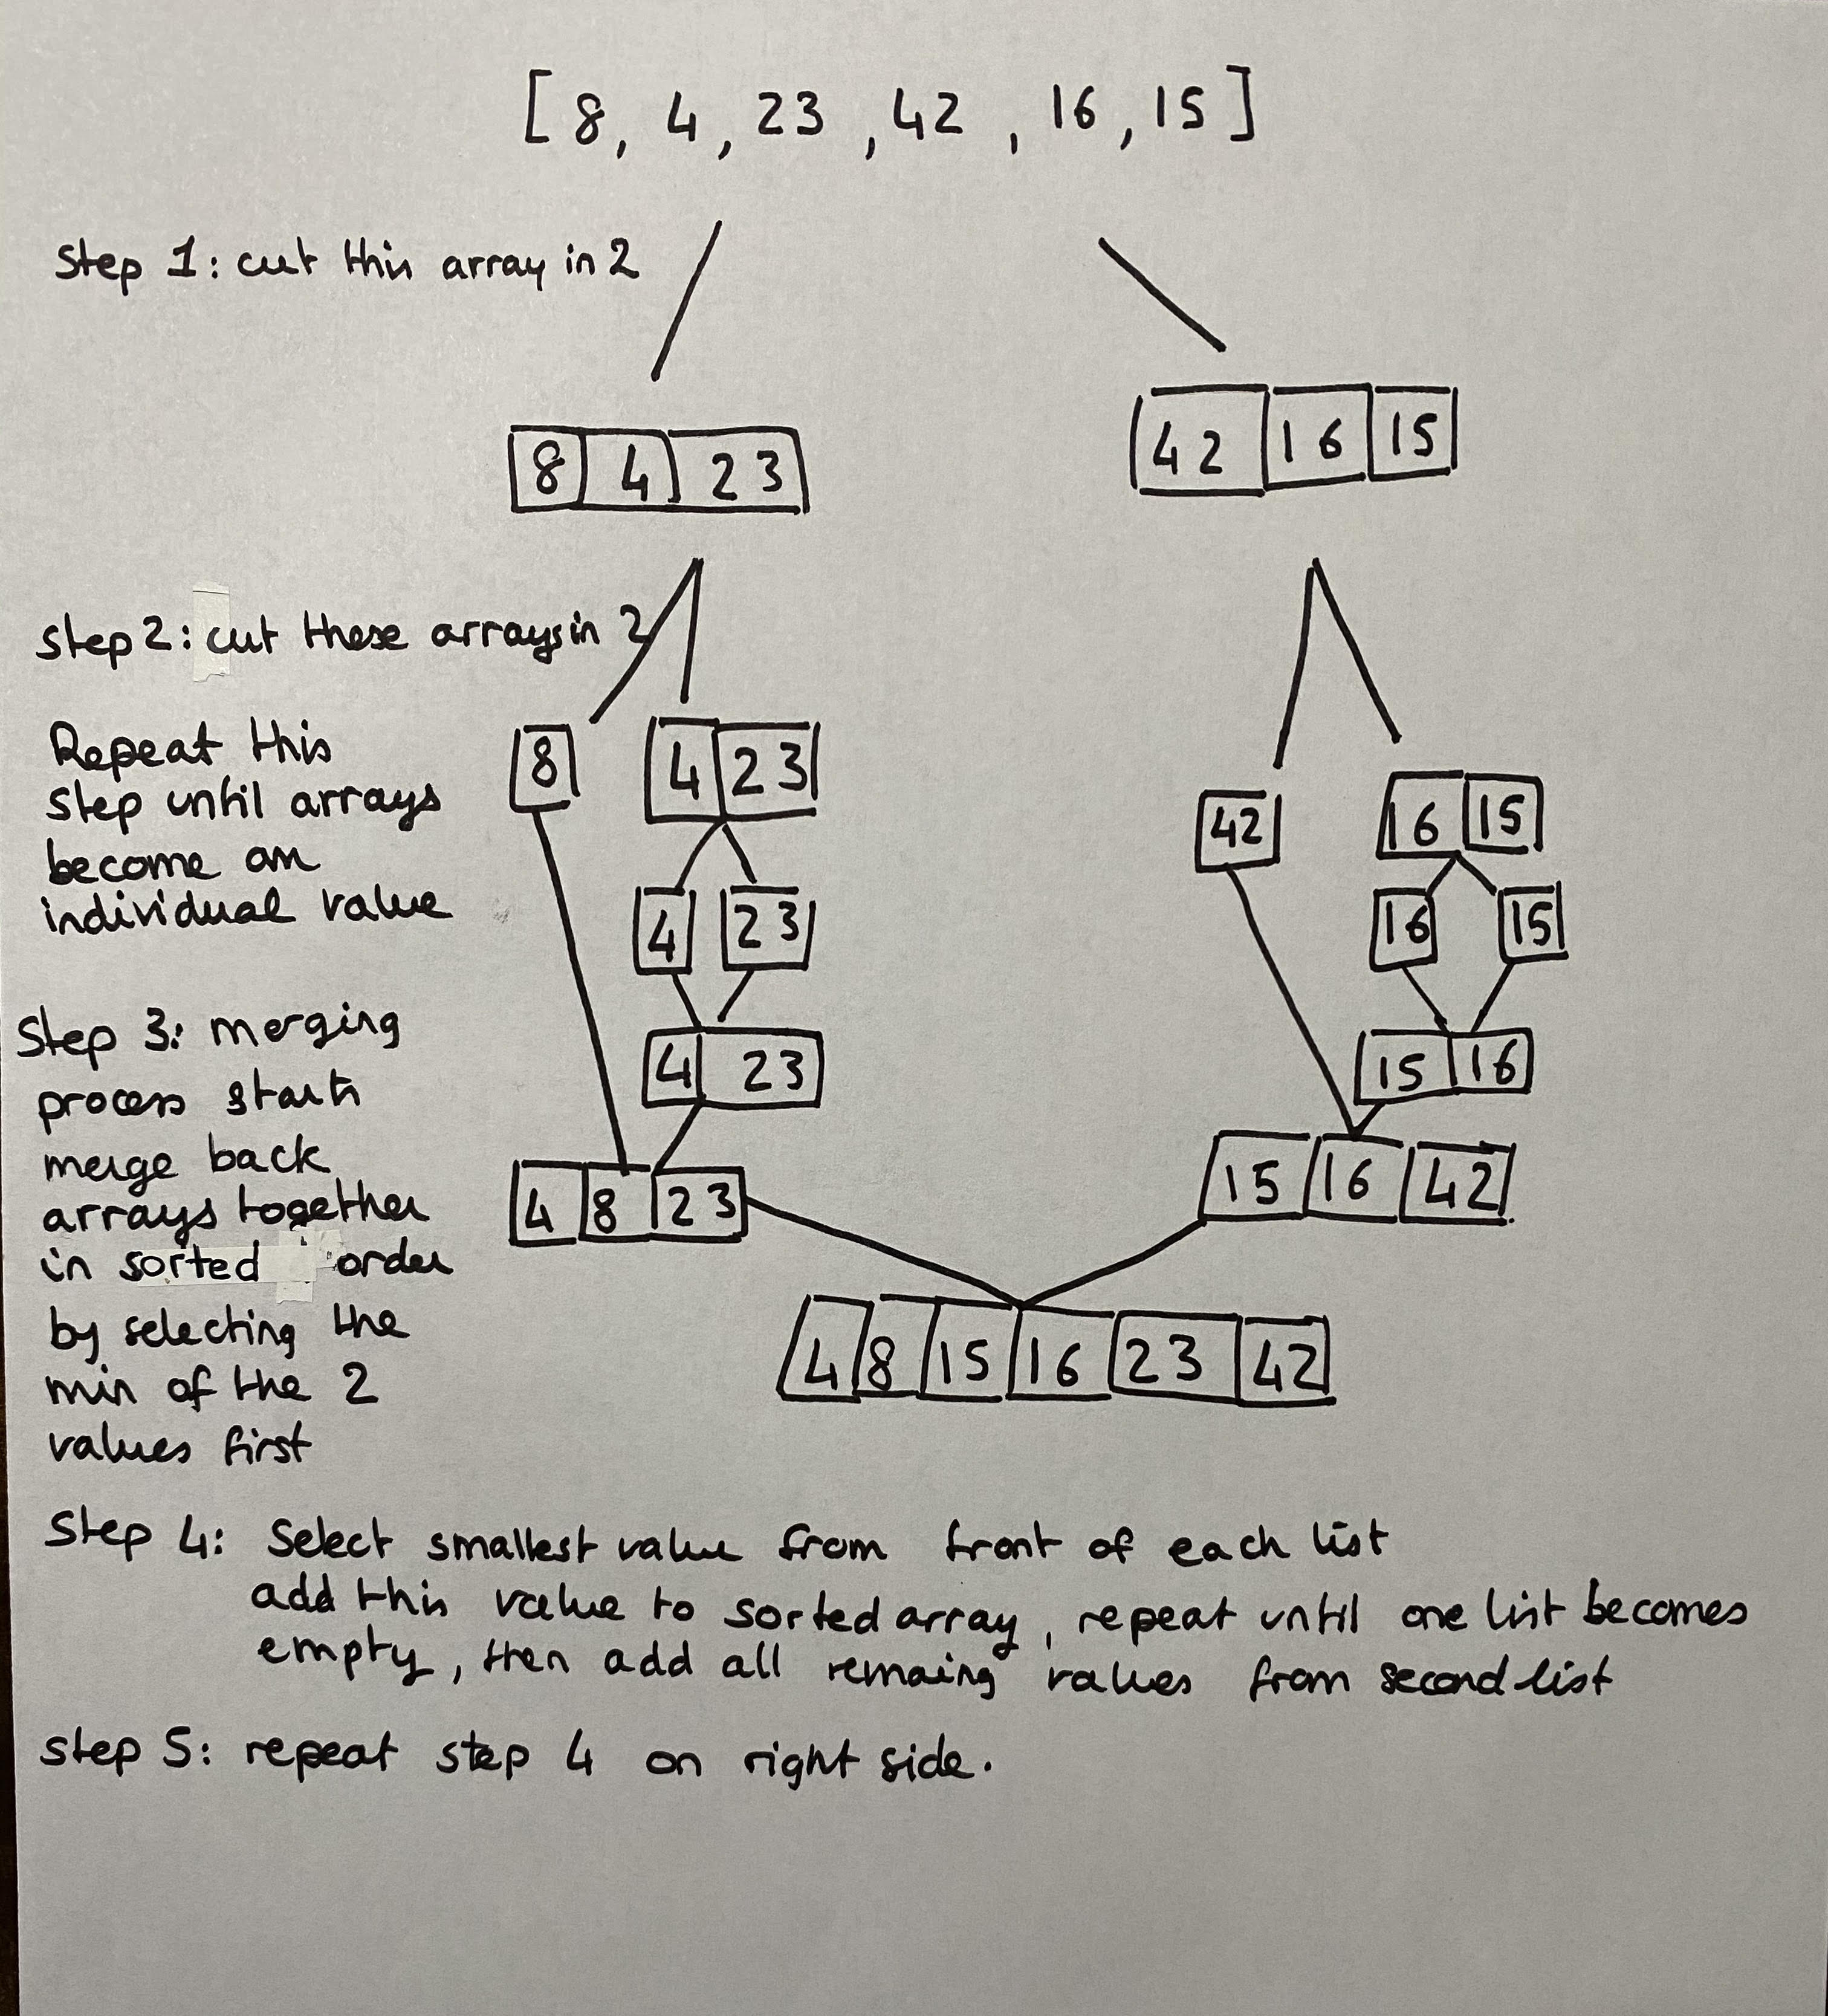 [ 8, 4, 23 , 42 , 16, 15 ]
Step 1: cut this array in 2
8 4 23
42 16 15
step 2: cut these arrays in 2
Repeat this
step until arrays
become an
individual value
8 4 23
42 16 15
4 23
16 15
Step 3: merging
process starts
merge back
arrays together
in sorted order
by selecting the
min of the 2
values first
4 23
15 16
4 8 23
15 16 42
4 8 15 16 23 42
Step 4: Select smallest value from front of each list
add this value to sorted array, repeat until one list becomes
empty, then add all remaing values from second list
step 5: repeat step 4 on right side.